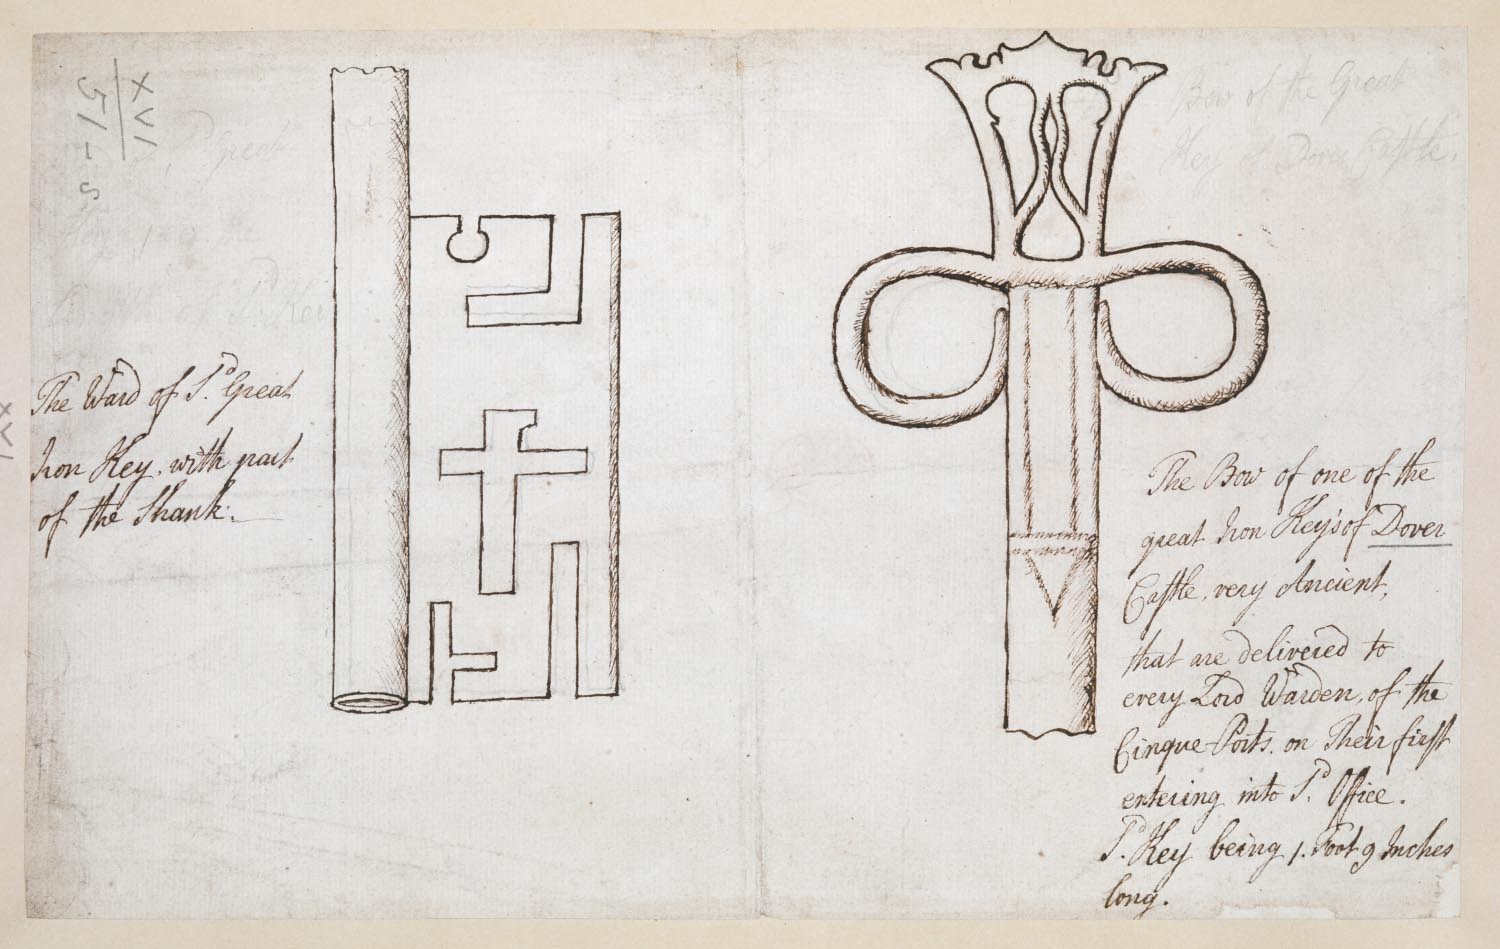 XVI
51-S
The Ward of S.d Great
Iron Key, with part
of the Shank.
Bow of the Great
Key of Dover Castle.
The Bow of one of the
great Iron Key's of Dover
Castle, very Ancient,
that are delivered to
every Lord Warden, of the
Cinque-Ports, on Their first
entering into S.d Office.
S.d Key being 1. Foot 9 Inches
long.